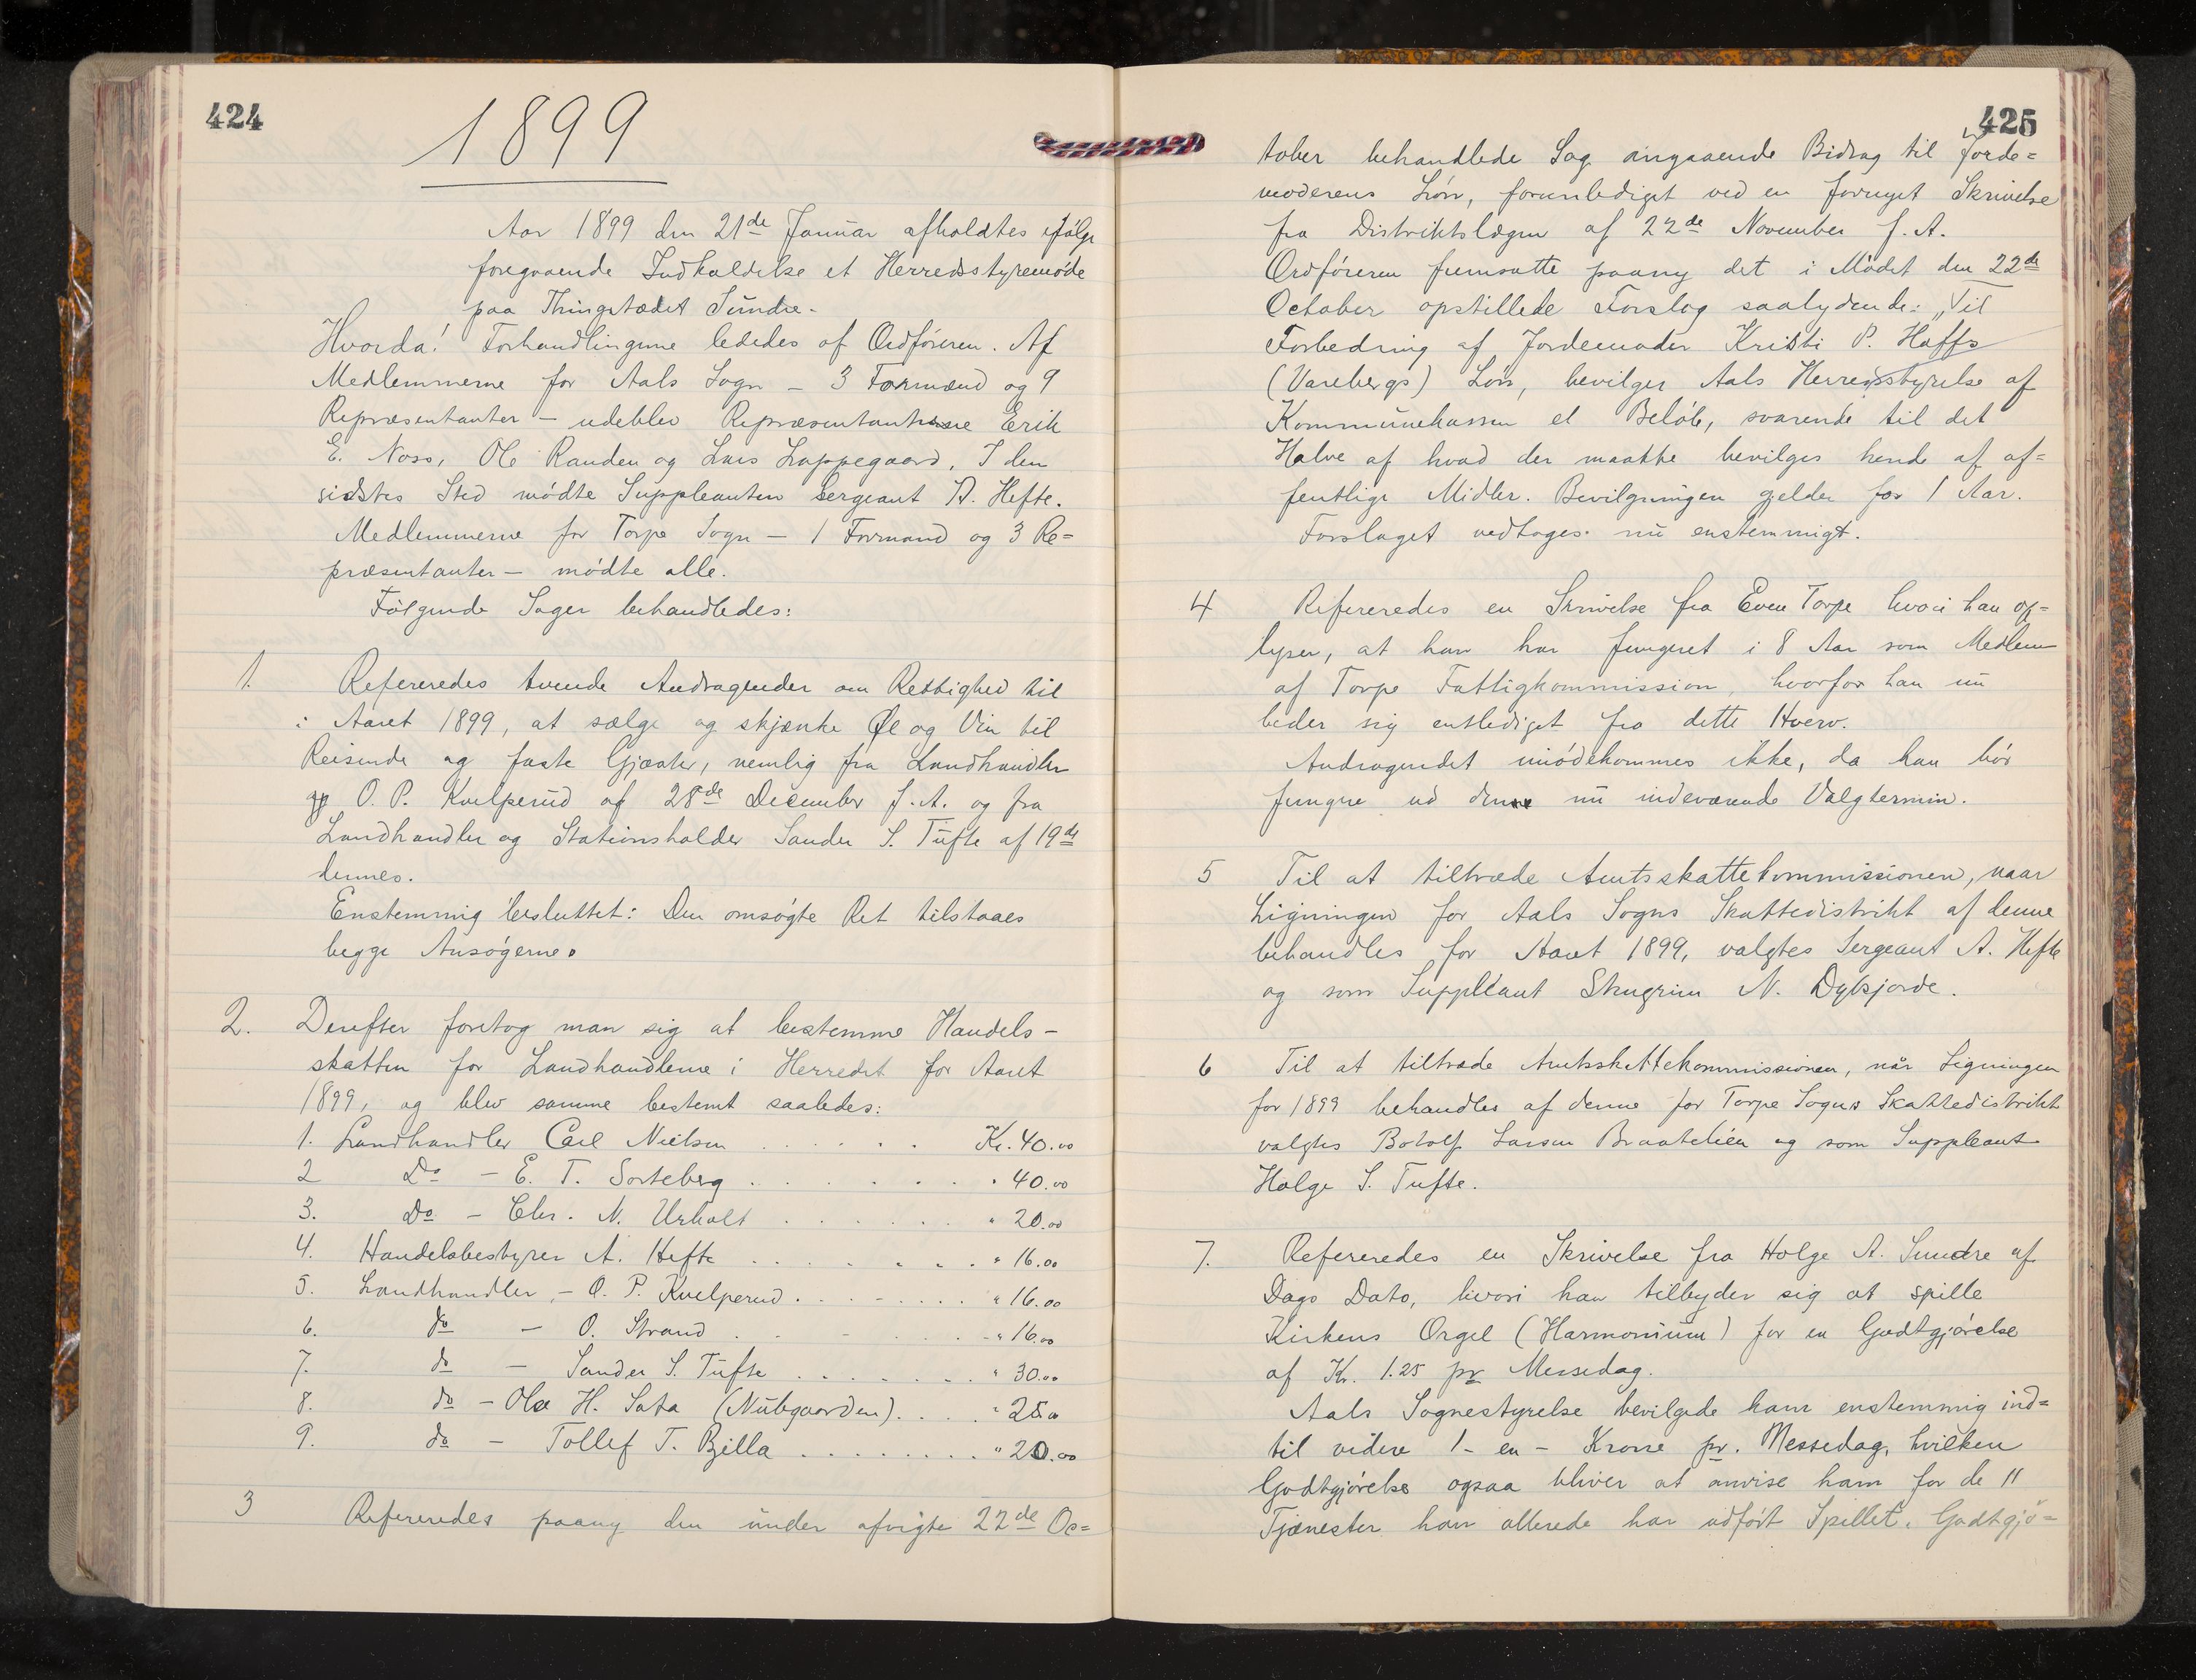 424
1899
Aar 1899 den 21de Januar afholdtes ifølge
foregaaende Indkaldelse et Herredsstyremøde
paa Thingstedet Sundre.
Hvorda! Forhandlingerne lededes af Ordføreren. Af
Medlemmerne for Aals Sogn – 3 Formænd og 9
Repræsentanter – udeblev Repræsentanterne Erik
E. Noss, Ole Randen og Lars Lappegaard. I den
sidstes Sted mødte Suppleanten Sergeant A. Hefte.
Medlemmerne for Torpe Sogn – 1 Formand og 3 Re=
præsentanter – mødte alle.
Følgende Sager behandledes:
1. Refereredes tvende Andragender om Rettighed til
i Aaret 1899, at sælge og skjænke Øl og Vin til
Reisende og faste Gjæster, nemlig fra Landhandler
O. P. Kvelperud af 28de December f. A. og fra
Landhandler og Stationsholder Sander S. Tufte af 19de
dennes.
Enstemmig besluttet: Den omsøgte Ret tilstaaes
begge Ansøgerne.
2. Derefter foretog man sig at bestemme Handels-
skatten for Landhandlerne i Herredet for Aaret
1899, og blev samme bestemt saaledes:
1. Landhandler Carl Nielsen . . . . . Kr. 40.00
2 Do – E. T. Sorteberg . . . . . . " 40.00
3. Do – Chr. N. Urholt . . . . . . " 20.00
4. Handelsbestyrer A. Hefte . . . . . . . " 16.00
5. Landhandler – O. P. Kvelperud . . . . . . . " 16.00
6. do – O. Strand . . . . . . " 16.00
7. do – Sander S. Tufte . . . . . . . " 30.00
8. do – Ola H. Sata (Nubgaarden) . . . . " 25.00
9. do – Tollef T. Bjella . . . . . . . . " 20.00
3 Refereredes paany den under afvigte 22de Oc=
425
tober behandlede Sag angaaende Bidrag til Jorde=
moderens Løn, foranlediget ved en fornyet Skrivelse
fra Distriktslægen af 22de November f. A.
Ordføreren fremsatte paany det i Mødet den 22de
October opstillede Forslag saalydende: „Til
Forbedring af Jordemoder Kristi P. Haffs
(Varebergs) Løn, bevilger Aals Herredsstyrelse af
Kommunekassen et Beløb, svarende til det
Halve af hvad der maatte bevilges hende af of=
fentlige Midler. Bevilgningen gjelder for 1 Aar.
Forslaget vedtoges nu enstemmigt.
4 Refereredes en Skrivelse fra Even Torpe hvori han op=
lyser, at han har fungeret i 8 Aar som Medlem
af Torpe Fattigkommission, hvorfor han nu
beder sig entlediget fra dette Hverv.
Andragendet imødekommes ikke, da han bør
fungere ud denne nu indeværende Valgtermin.
5 Til at tiltræde Amtsskattekommissionen, naar
Ligningen for Aals Sogns Skattedistrikt af denne
behandles for Aaret 1899, valgtes Sergeant A. Hefte
og som Suppleant Skugrim N. Dyksjorde.
6 Til at tiltræde Amtsskattekommissionen, når Ligningen
for 1899 behandles af denne for Torpe Sogns Skattedistrikt
valgtes Botolf Larsen Braatelien og som Suppleant
Holge S. Tufte.
7. Refereredes en Skrivelse fra Holge A. Sundre af
Dags Dato, hvori han tilbyder sig at spille
Kirkens Orgel (Harmonium) for en Godtgjørelse
af Kr. 1.25 pr Messedag.
Aals Sognestyrelse bevilgede ham enstemmig ind=
til videre 1 - en - Krone pr. Messedag, hvilken
Godtgjørelse ogsaa bliver at anvise ham for de 11
Tjænester han allerede har udført Spillet. Godtgjø=